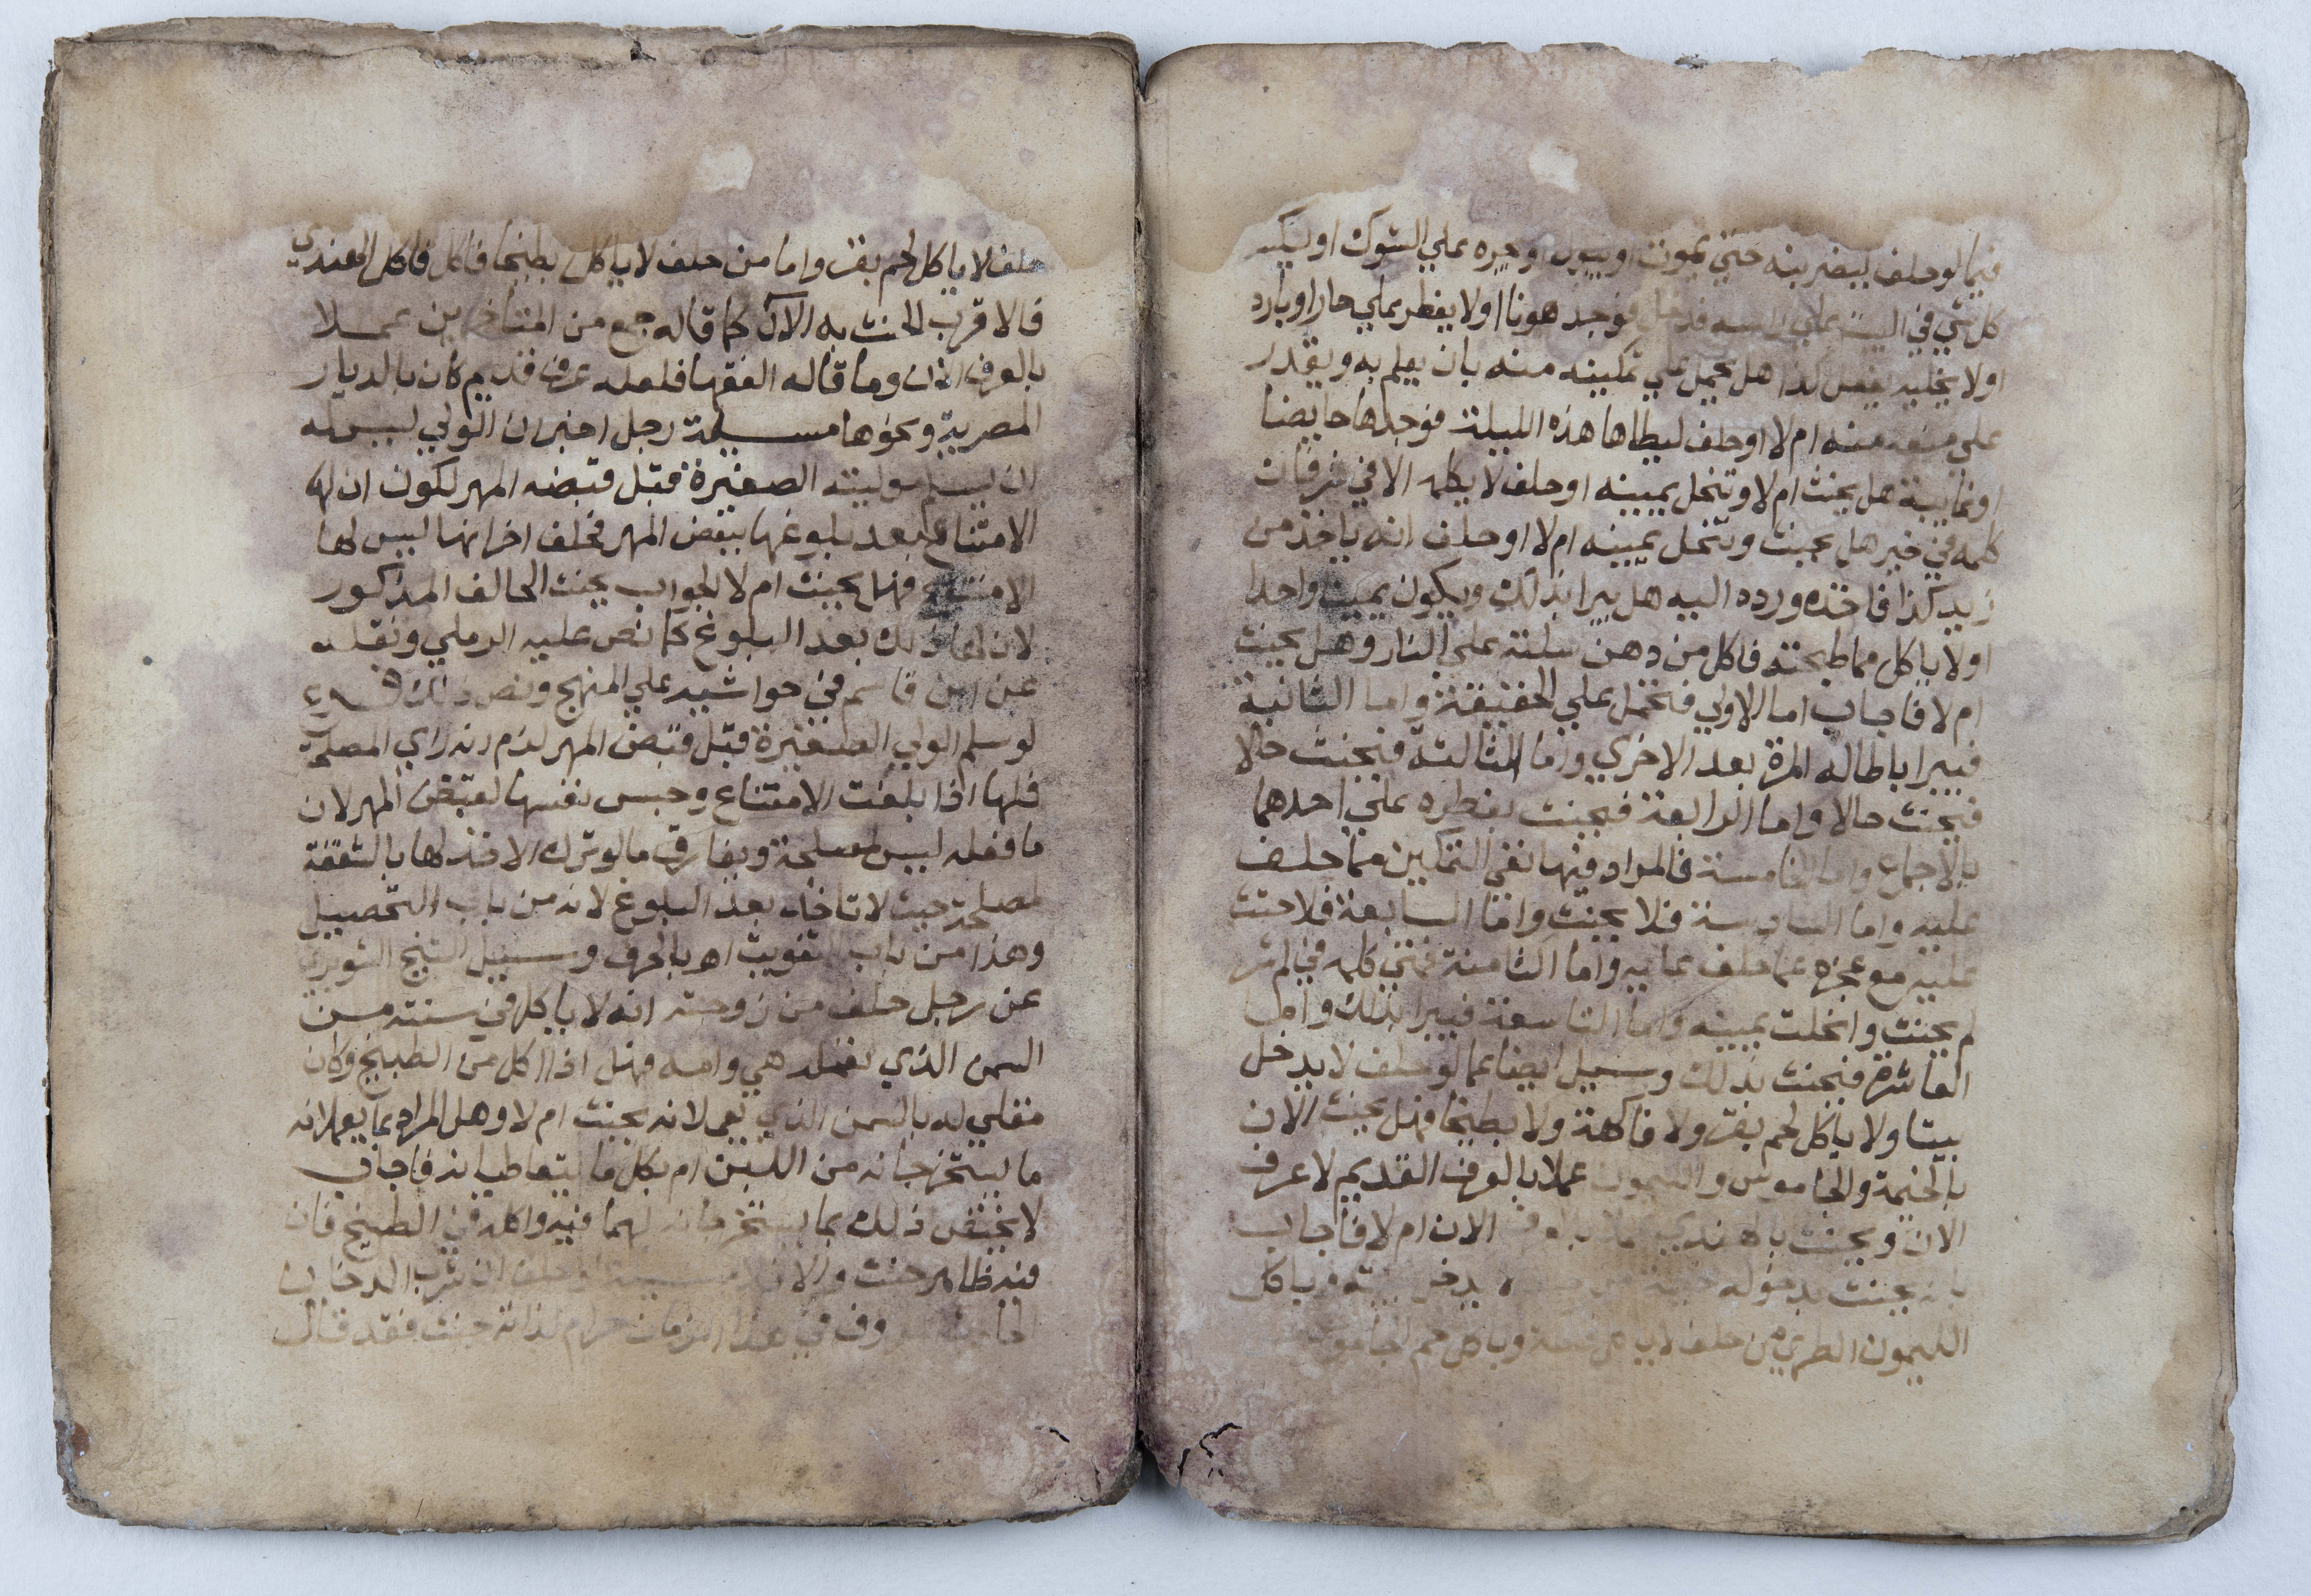 فيما لو حلف ليضربنه حتي يموت او يبول او جره علي الشوك او ليكسر
كل شي في البيت علي راسه فدخل فوجد هونا او لا يفطر علي حار او بارد
او لا يخليه يفعل كذا هل يحمل علي تمكينه منه بان يعلم به ويقدر
علي منعه منه ام لا او حلف ليطاها هذه الليلة فوجدها حايضا
او غايبة هل يحنث ام لا وتنحل يمينه او حلف لا يكلمه الا في شر فان
كلمه في خير هل يحنث وتنحل يمينه ام لا او حلف انه ياخذ من
زيد كذا فاخذه ورده اليه هل يبرا بذلك ويكون يمينا واحدا
او لا ياكل مما طبخته فاكل من دهن سلته علي النار وهل يحنث
ام لا فاجاب اما الاولي فتحمل علي الحقيقة واما الثانية
فيبرا باطالة المرة بعد الاخري واما الثالثة فيحنث حالا
فيحنث حالا واما الرابعة فيحنث بفطره علي احدهما
بالاجماع واما الخامسة فالمراد فيها نفي التمكين مما حلف
عليه واما السادسة فلا يحنث واما السابعة فلا حنث
عليه مع عجزه عما حلف عليه واما الثامنة فمتي كلمه في لم شر
لم يحنث وانحلت يمينه واما التاسعة فيبرا بذلك واما
العاشرة فيحنث بذلك وسييل ايضا عما لو حلف لا يدخل
بيتا ولا ياكل لحم بقر ولا فاكهة ولا بطيخا فهل يحنث الان
بالخيمة والجاموس والليمون عملا بالعرف القديم لا عرف
الان ويحنث بالهندي الان ام لا فاجاب
بانه يحنث بدخوله وباكل
الليمون الطري من حلف لا ياكل فاكهة وباكل لحم الجاموس
حلف لا ياكل لحم بقر واما من حلف لا ياكل بطيخا فاكل فاكل الهندي
فالاقرب الحنث به الان كما قاله جمع من المتاخرين عملا
بالعرف الان وما قاله الفقها فلعله عرف قديم كان بالديار
المصرية ونحوها مسيلة رجل اخبر ان الولي ليس له
ان يسلم موليته الصغيرة قبل قبضه المهر لكون ان لها
الامتناع بعد بلوغها بقبض المهر فحلف اخر انها ليس لها
الامتناع فهل يحنث ام لا الجواب يحنث الحالف المذكور
لان لها ذلك بعد البلوغ كما نص عليه الرملي ونقله
عن ابن قاسم في حواشيه علي المنهج ونص ذلك
لو سلم الولي الصغيرة قبل قبض المهر لدم راي المصلحة
فلها اذا بلغت الامتناع وحبس نفسها لقبض المهر لان
ما فعله ليس لمصلحة ويفارق ما لو ترك الاخذ لها بالشفعة
لمصلحة حيث لا تاخذ بعد البلوغ لانه من باب التحصيل
وهذا من باب التفويت اهـ بالحرف وسييل الشيخ الشوبري
عن رجل حلف من زوجته انه لا ياكل في سنته من
السمن الذي تعمله هي وامه فهل اذا اكل من الطبيخ وكان
مقلي له بالسمن الذي يعملانه يحنث ام لا وهل المراد بما يعملانه
ما يستخرجانه من اللبن ام بكل ما يتعاطيانه فاجاب
لا يختص ذلك بما يستخرجانه لهما فيه واكله في الطبيخ فان
فيه ظاهر حنث والا فلا مسيلة لو حلف ان شرب الدخان
الحادث المعروف في هذا الزمان حرام لذاته حنث فقد قال